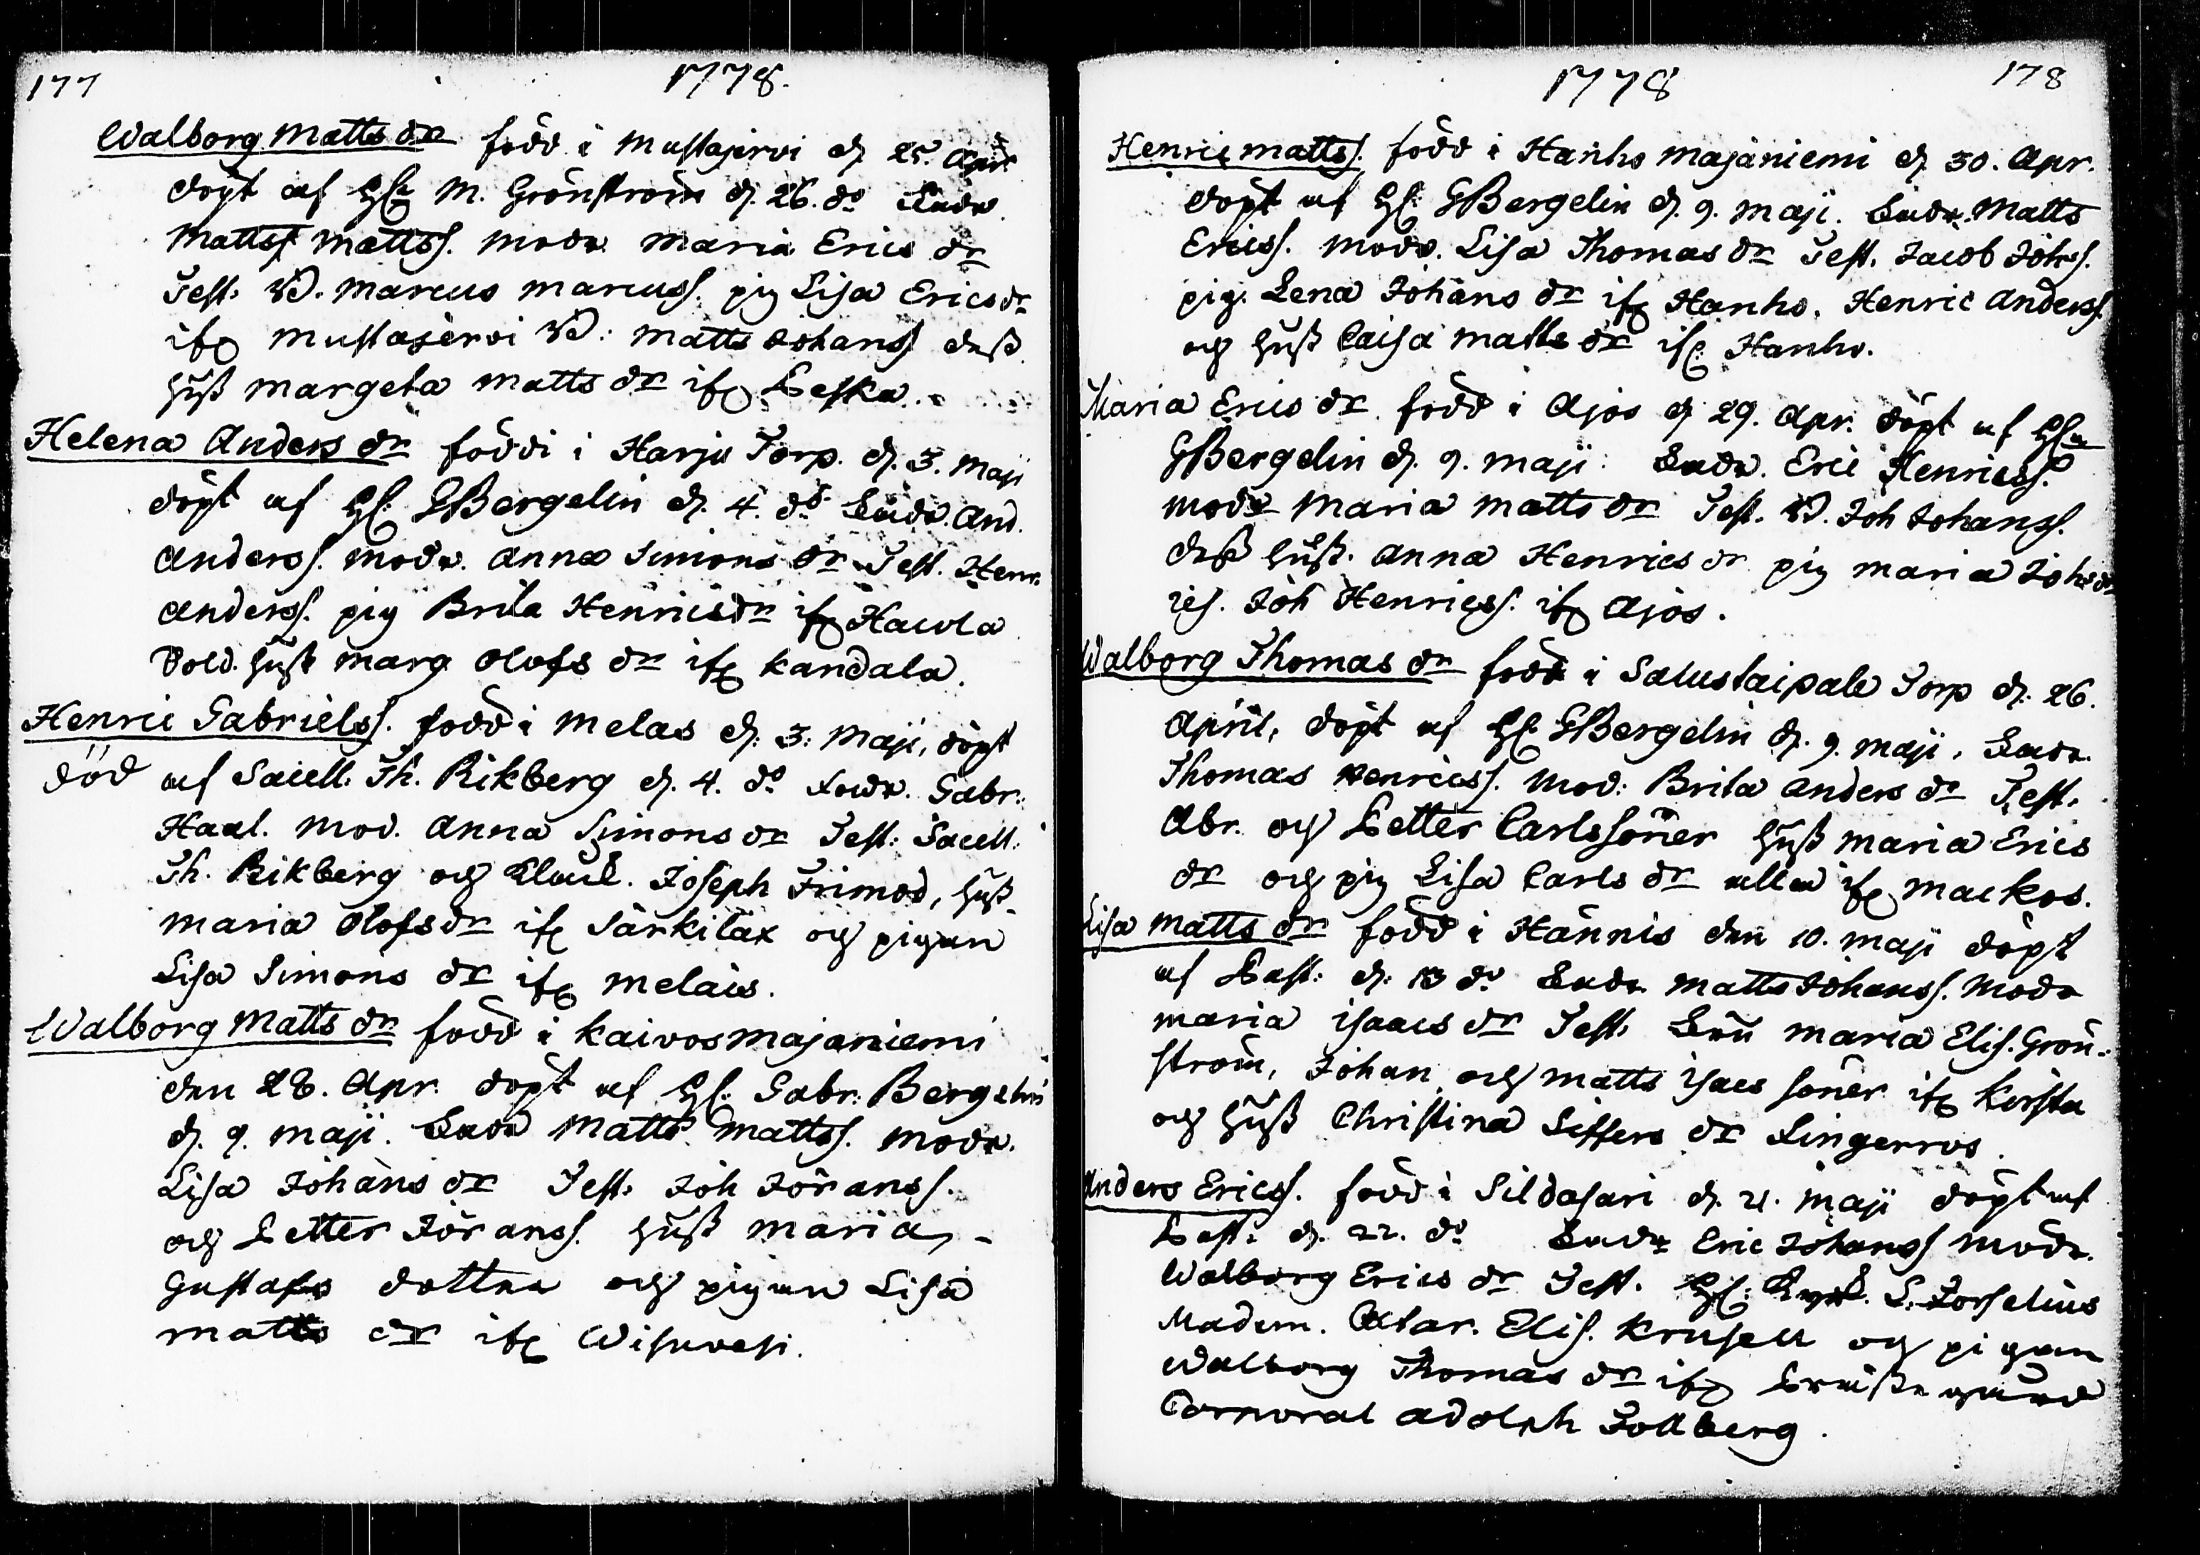 177
1778.
Walborg Matts dr född i Mustajervi d. 25. Apr.
döpt af H. M. Grönström d. 26. do Fadr.
Mattss Mattss. modr Maria Erics dr
Test. B. Marcus Marcuss. pig Lisa Erics dr
ifr Mustajervi B: Matts Johanss dess
hust Margeta Matts dr ifr Peska.
Helena Anders dr född i Harju Torp. d. 3. Maji
döpt af H. G Bergelin d. 4. do Fadr. And.
Anderss. modr. Anna Simons dr Test. Henr.
Anderss. pig Brita Henricsdr ifr Hacola
Bold. hust Marg Olofs dr ifr Kandala.
Henric Gabrielss. född i Melas d. 3. Maji, döpt
död af Sacell. Th. Rikberg d. 4. do Fadr. Gabr.
Haal. Mod. Anna Simons dr Test. Sacell.
Th. Rikberg och Joseph Frimod, hust.
Maria Olofsdr ifr Särkilax och pigan
Lisa Simons dr ifr Melais.
Walborg Matts dr född i Kaivosmajaniemi
den 28. Apr. döpt af H. Gabr. Bergelin
d. 9. Maji. Fadr Matts Mattss. modr.
Lisa Johans dr Test. Joh Jöranss.
och Petter Jöranss. hust Maria
Gustafs dotter och pigan Lisa
Matts dr ifr Wisuvesi.
1778
178
Henric Mattss. född i Hanho Majaniemi d. 30. Apr.
döpt af H. G Bergelin d. 9. Maji. Fadr. Matts
Ericss. Modr. Lisa Thomas dr Test. Jacob Johss.
pig. Lena Johans dr ifr Hanho. Henric Anderss.
och hust Caisa Matts dr ifr Hanho.
Maria Erics dr. född i Ajos d 29. Apr. döpt af H.
G Bergelin d. 9. Maji. Fadr. Eric Henricss.
modr Maria Matts dr Test. B. Joh Johanss.
dess hust. Anna Henrics dr pig Maria Johs dr
Joh Henricss. ifr Ajos.
Walborg Thomas dr född i Salustaipale Torp d. 26.
April, döpt af H. G Bergelin d. 9. Maji. Fadr.
Thomas Henricss. Mod: Brita Anders dr Test.
Abr. och Petter Carlssöner hust Maria Erics
dr och pig Lisa Carls dr alla ifr Mackos.
Lisa Matts dr född i Hännis den 10. Maji döpt
af Past. d. 13 do Fadr Matts Johanss. Modr
Maria Isaacs dr Test. Maria Elis. Grön-
ström, Johan och Matts Isacs söner ifr Kirsta
och hust Christina Siffers dr Lingerros.
Anders Ericss. född i Sildasari d. 21. Maji döpt af
Past. d. 22. do Fadr Eric Johanss Modr.
Walborg Erics dr Test. H. L. Forselius
Madem. Cathar. Elis. Krusell och pigan
Walborg Thomas dr ifr
Corporal Adolph Tollberg.